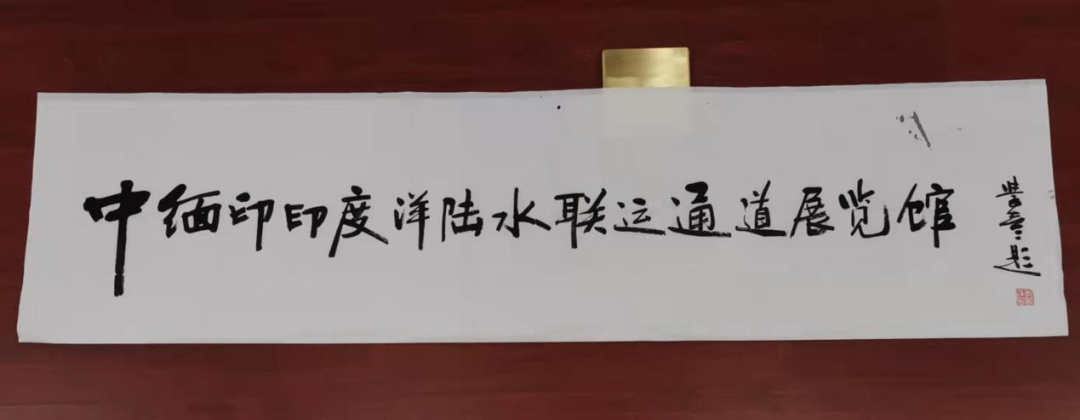 中缅印印度洋陆水联运通道展览馆
题